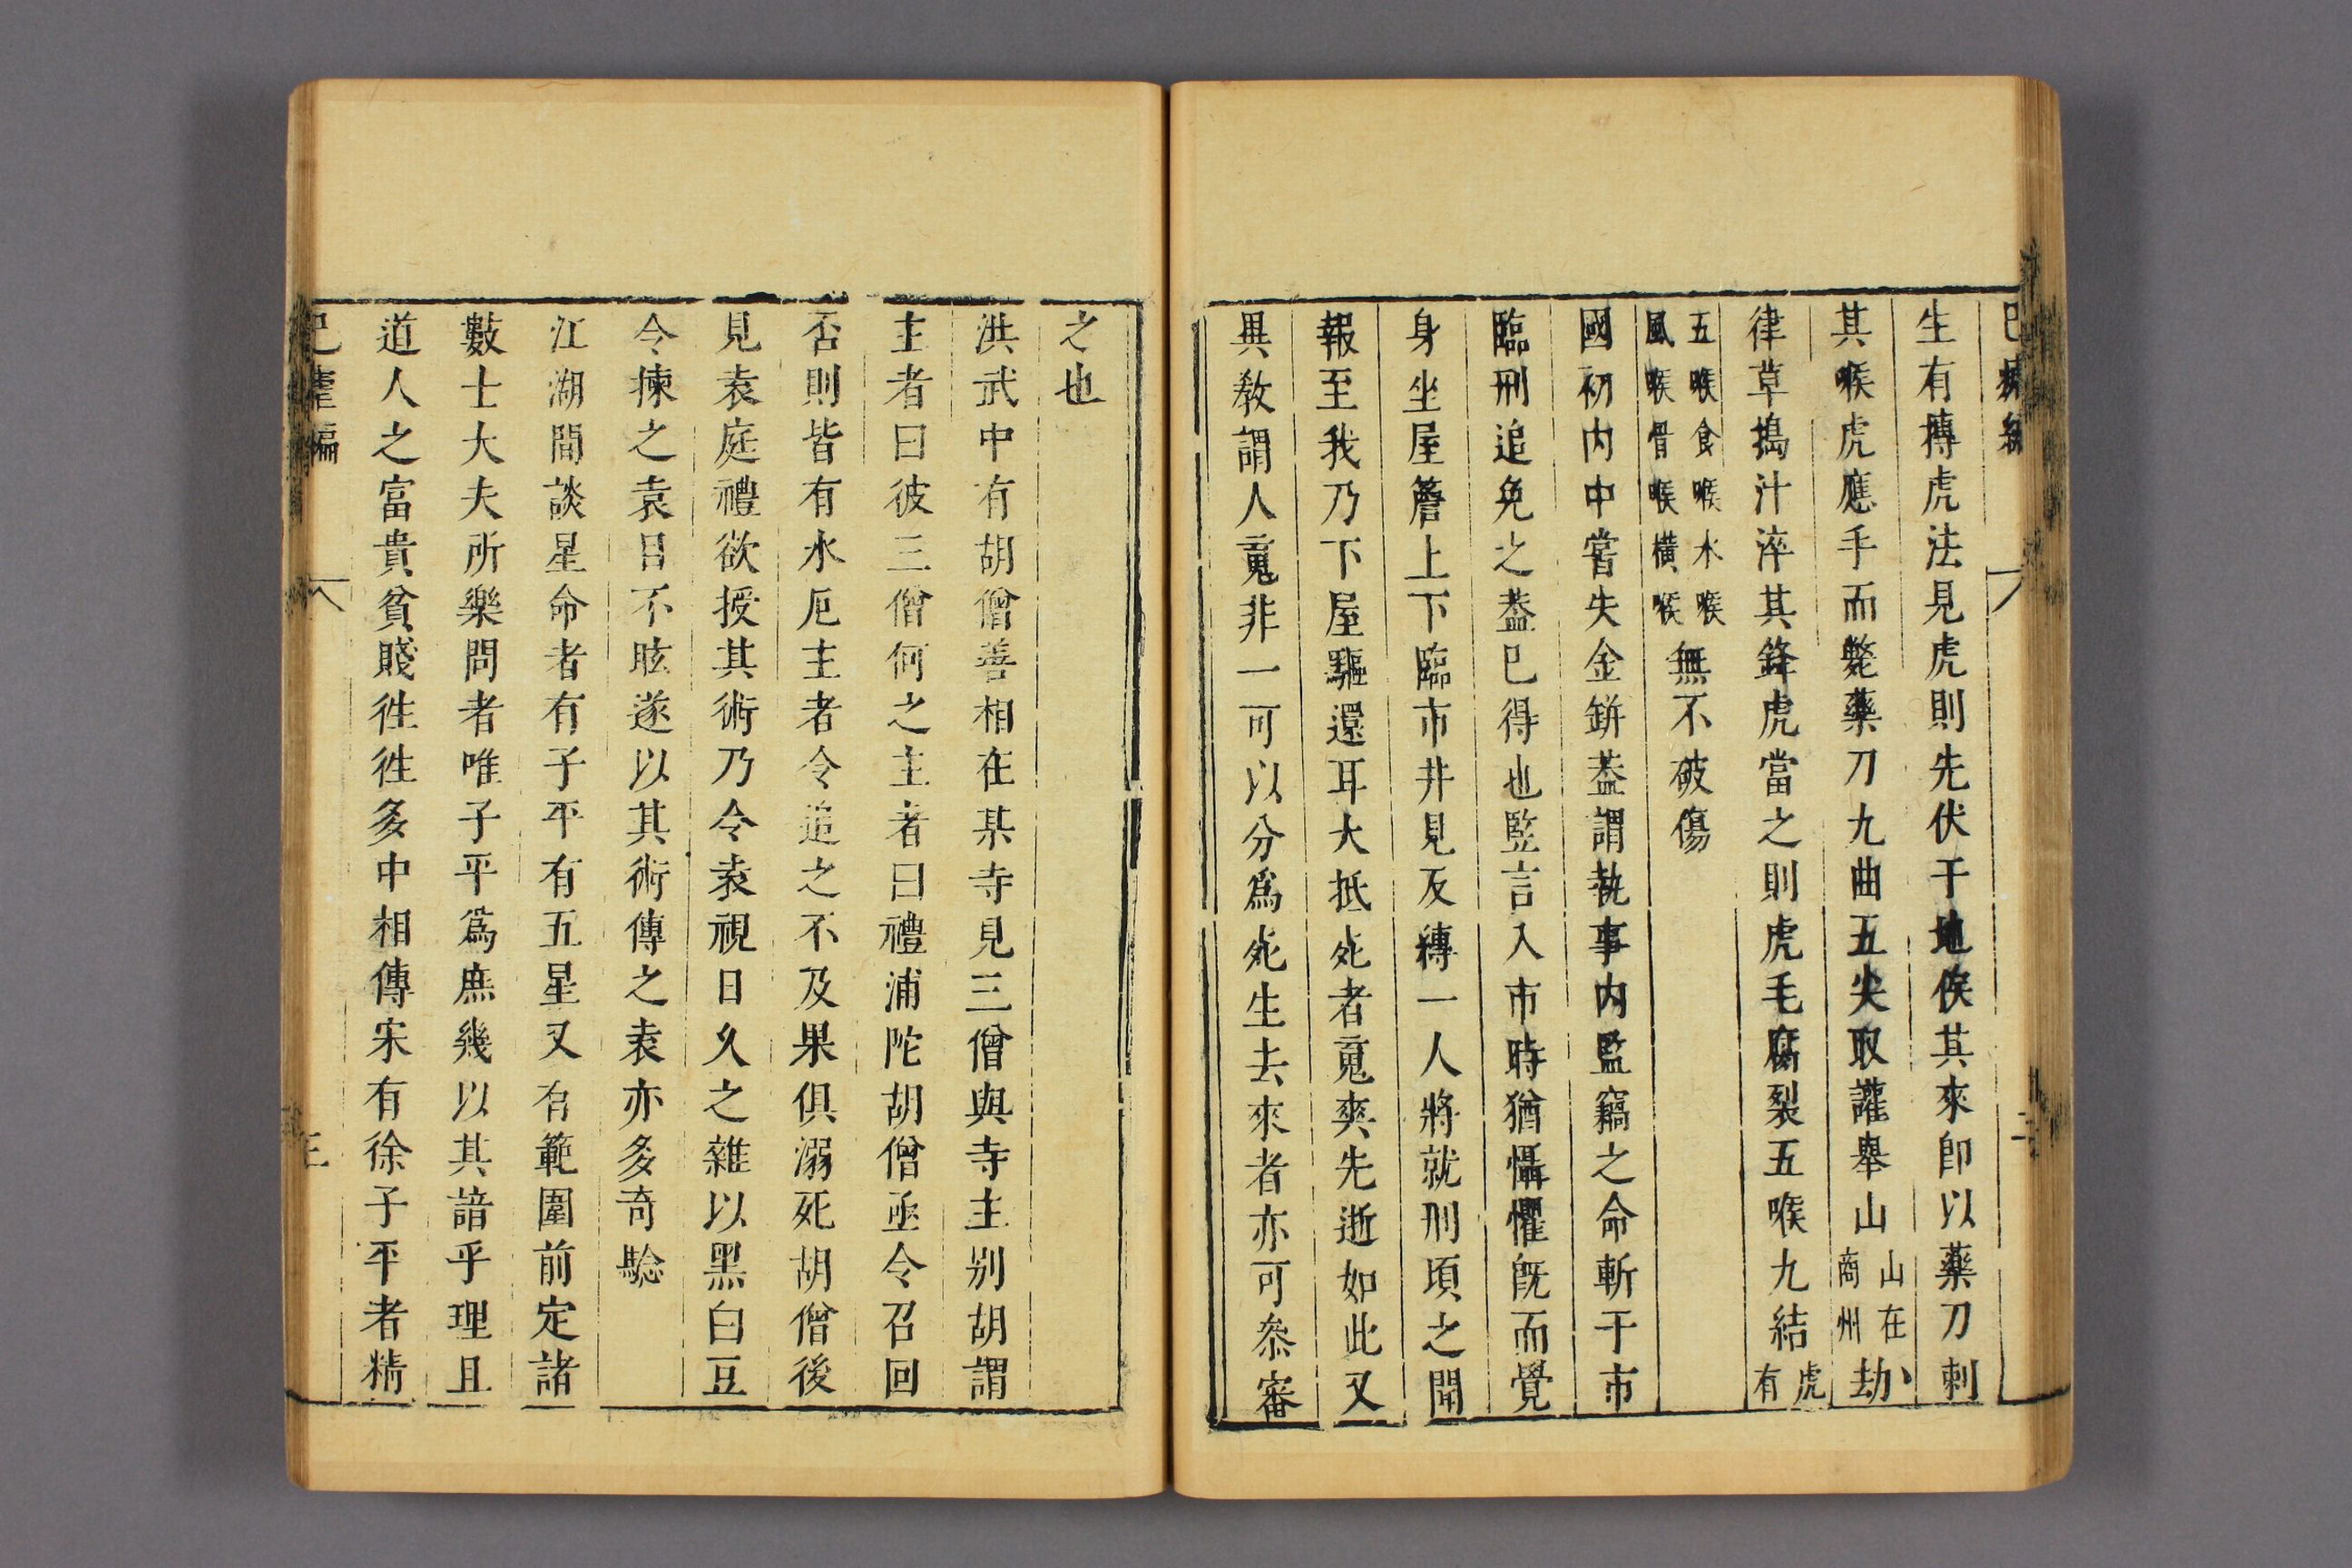 生有搏虎法見虎則先伏于地俟其來卽以藥刀刺
其喉虎應手而斃藥刀九曲五尖取讙舉山山在商州劫
律草搗汁淬其鋒虎當之則虎毛腐裂五喉九結虎有
五喉食喉水喉風喉骨喉橫喉無不破傷
國初内中嘗失金缾葢謂執事内監竊之命斬于市
臨刑追免之葢巳得也監言入市時猶懾懼旣而覺
身坐屋簷上下臨市井見反縳一人將就刑頃之聞
報至我乃下屋驅還耳大抵死者䰟爽先逝如此又
異教謂人䰟非一可以分爲死生去來者亦可叅審
之也
洪武中有胡僧善相在某寺見三僧與寺主别胡謂
主者曰彼三僧何之主者曰禮浦陀胡僧亟令召回
否則皆有水厄主者令追之不及果俱溺死胡僧後
見袁庭禮欲授其術乃令袁視日久之雜以黑白豆
令揀之袁目不眩遂以其術傳之袁亦多奇騐
江湖間談星命者有子平有五星又有範圍前定諸
數士大夫所樂問者唯子平爲庶幾以其諳乎理且
道人之富貴貧賤徃徃多中相傳宋有徐子平者精